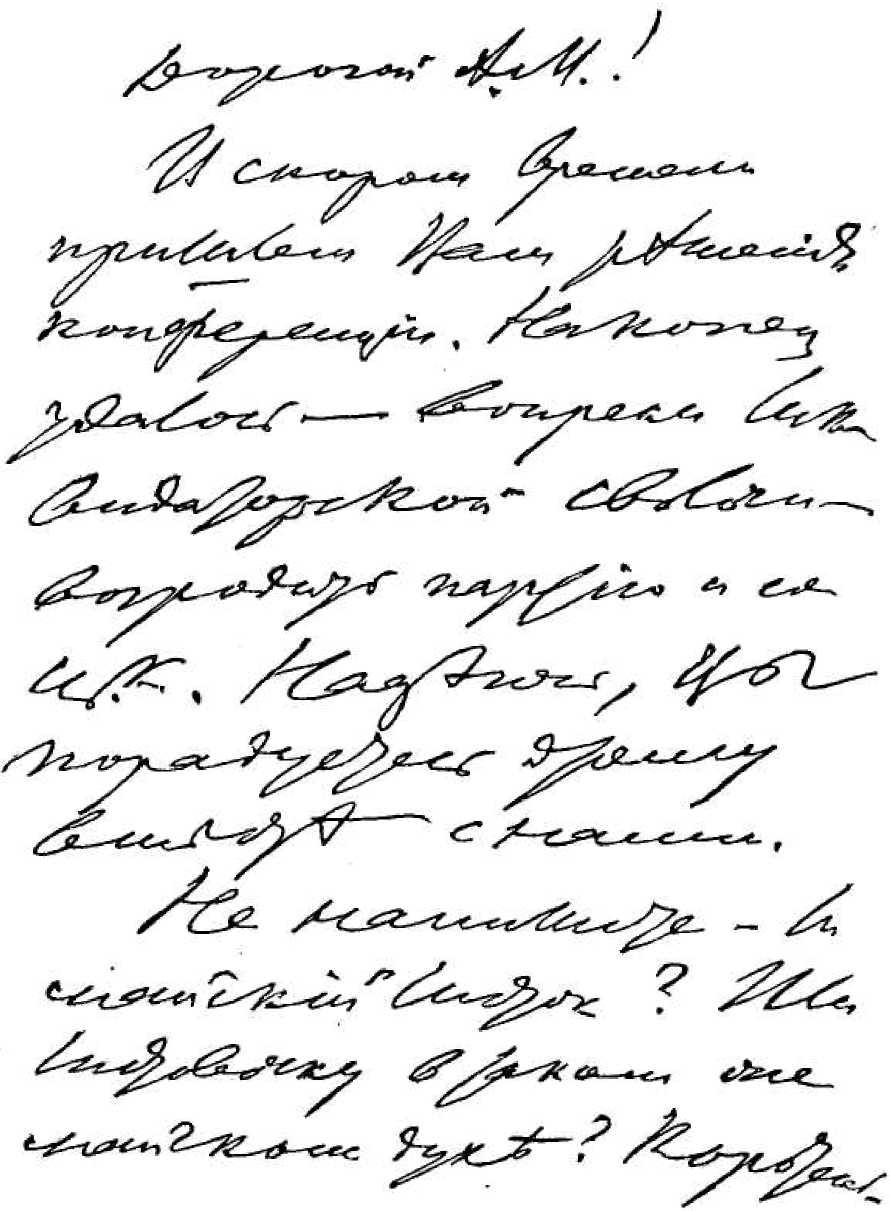 Дорогой А. М.!
В скором времени
пришлем Вам рѣшенія
конференціи. Наконец
удалось — вопреки лик
видаторской сволочи —
возродить партію и ее
Ц.К. Надѣюсь, Вы
порадуетесь этому
вместѣ с нами.
Не напишите - ли
майскій листок? Или
листовочку в таком же
майском духѣ? Коротень-